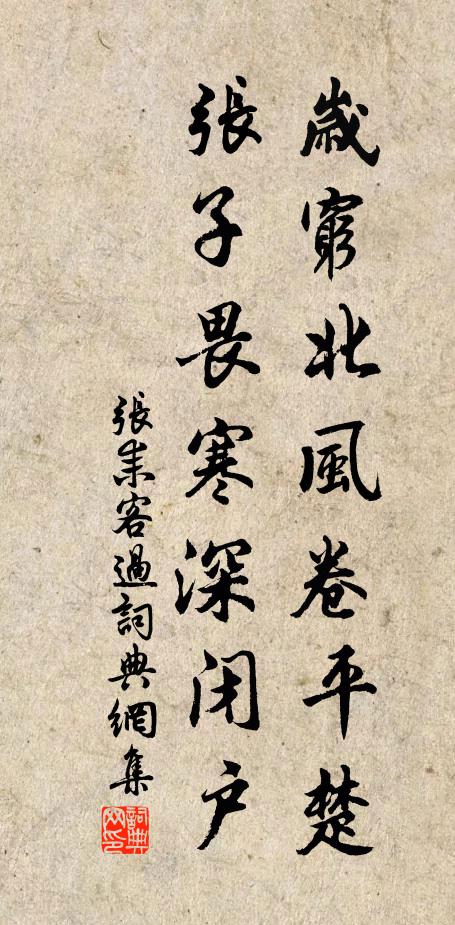 歲窮北風卷平楚
張子畏寒深閉戶
張耒客過詞典網集
詞典网印